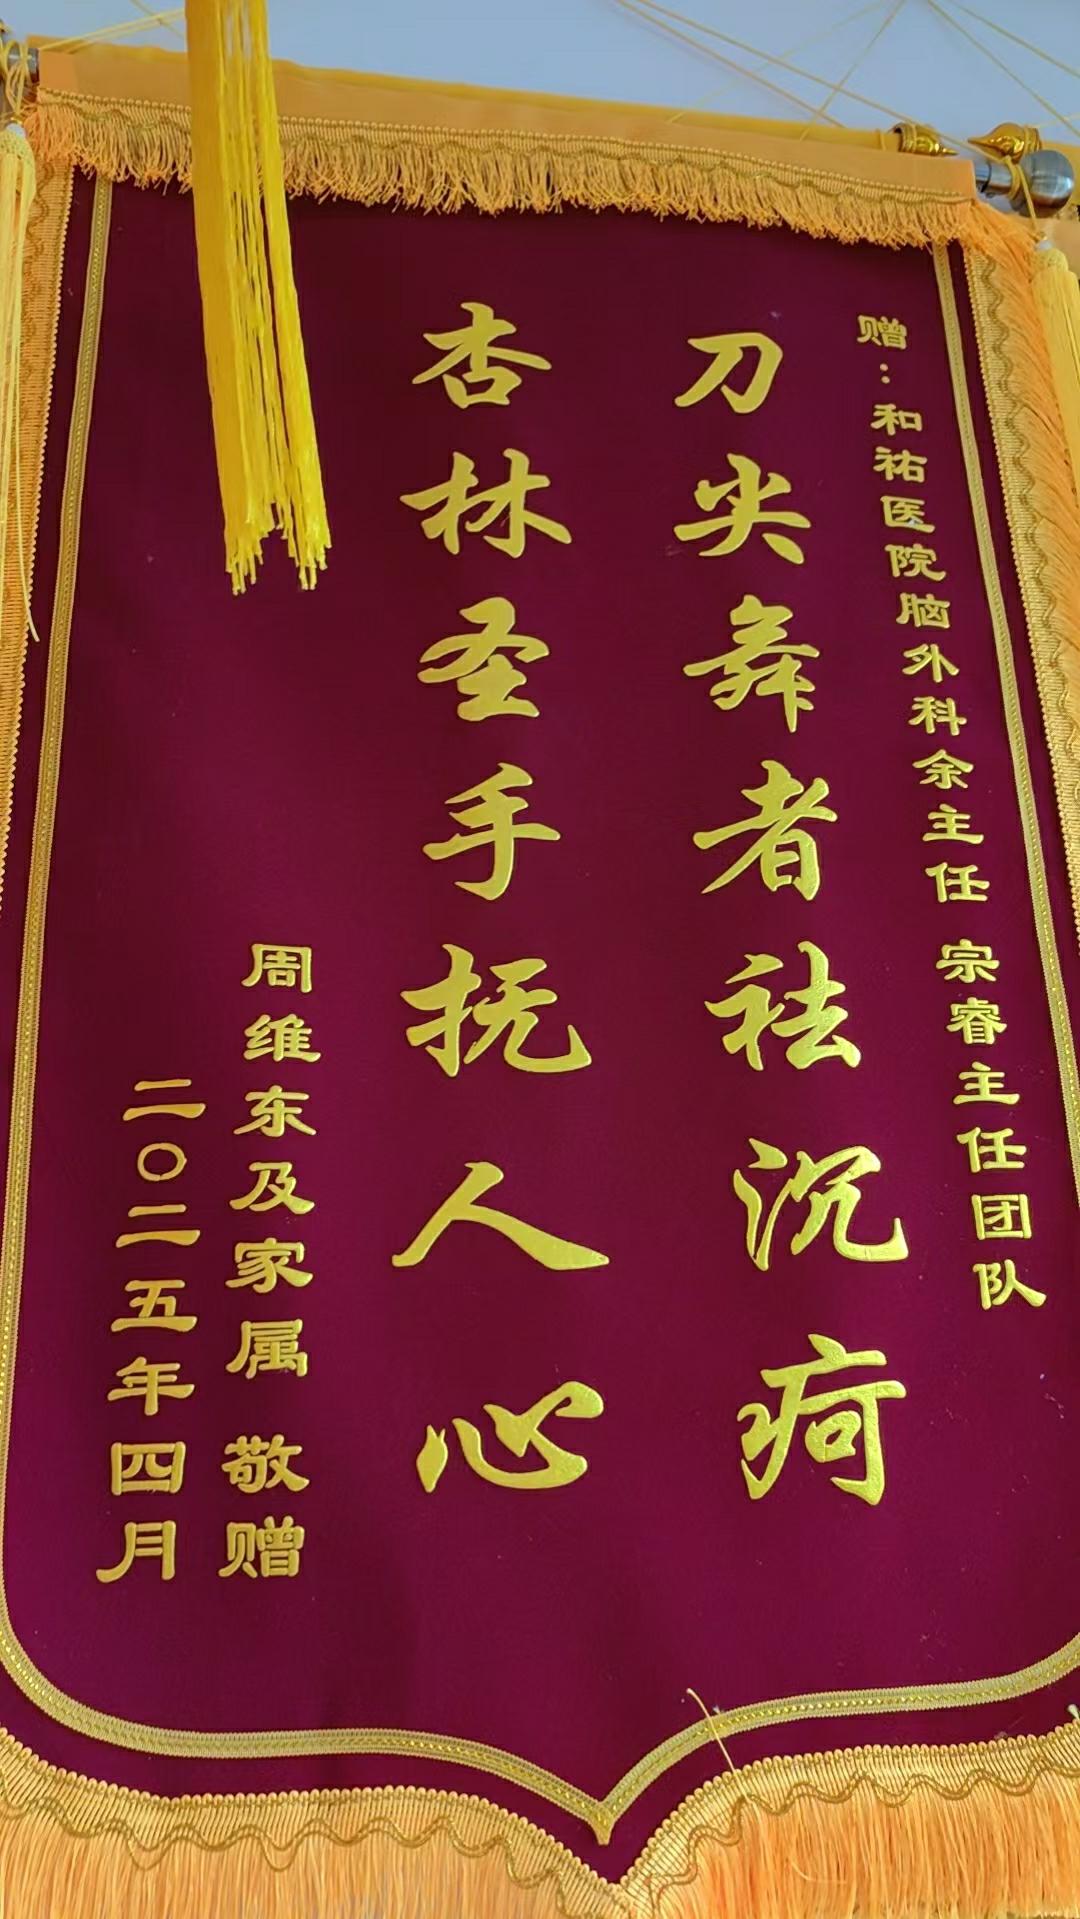 赠：和祐医院脑外科余主任 宗睿主任团队
刀尖舞者祛沉疴
杏林圣手抚人心
周维东及家属 敬赠
二〇二五年四月